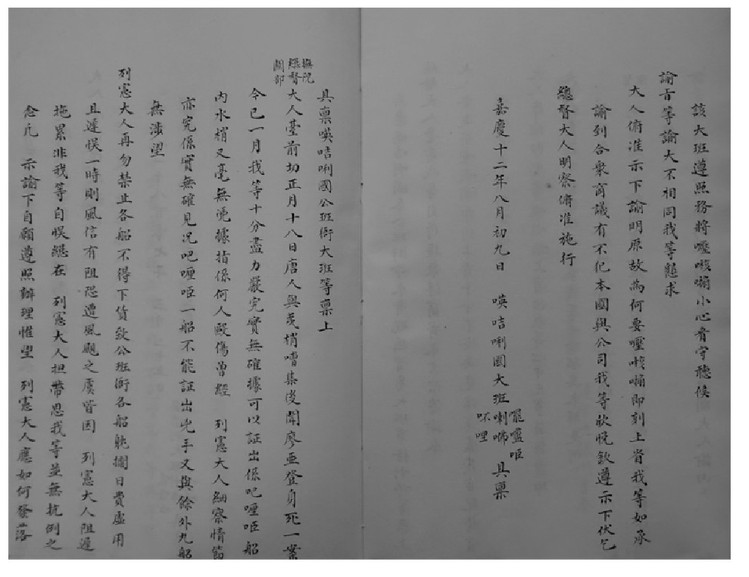 該大班遵照務將㖿㗒㘔小心看守聽候
諭旨等諭大不相同我等懇求
大人俯准示下諭明原故為何要即刻上省我等如承
諭到合衆商議有不犯本國與公司我等欣悅欽遵示下伏乞
總督大人明察俯准施行
嘉慶十二年八月初九日 𠸄咭唎國大班喇啡 具稟
具稟𠸄咭唎國公班衙大班等稟上
撫院
總督
關部
大人臺前切正月十八日唐人與夷梢嘈集後聞廖亞登身死一案
今已一月我等十分盡力嚴究實無確據可以証出係吧喱咂船
內水梢又毫無憑據指係何人毆傷曾經 列憲大人細察情節
亦究係實無確見况吧喱咂一船不能証出兇手又與餘外九船
無涉望
列憲大人再勿禁止各船不得下貨致公班衙各船躭擱日費虛用
且遲悮一時則風信有阻恐遭風颶之虞皆因 列憲大人阻遲
拖累非我等自悮總在 列憲大人担帶思我等並無抗例之
念凡 示諭下自願遵照辦理惟望 列憲大人應如何發落